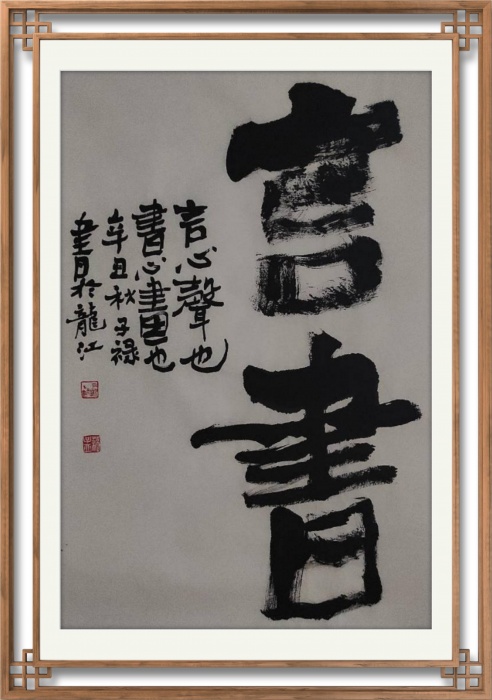 言書
言心聲也
書心畫也
辛丑秋子祿
書於龍江